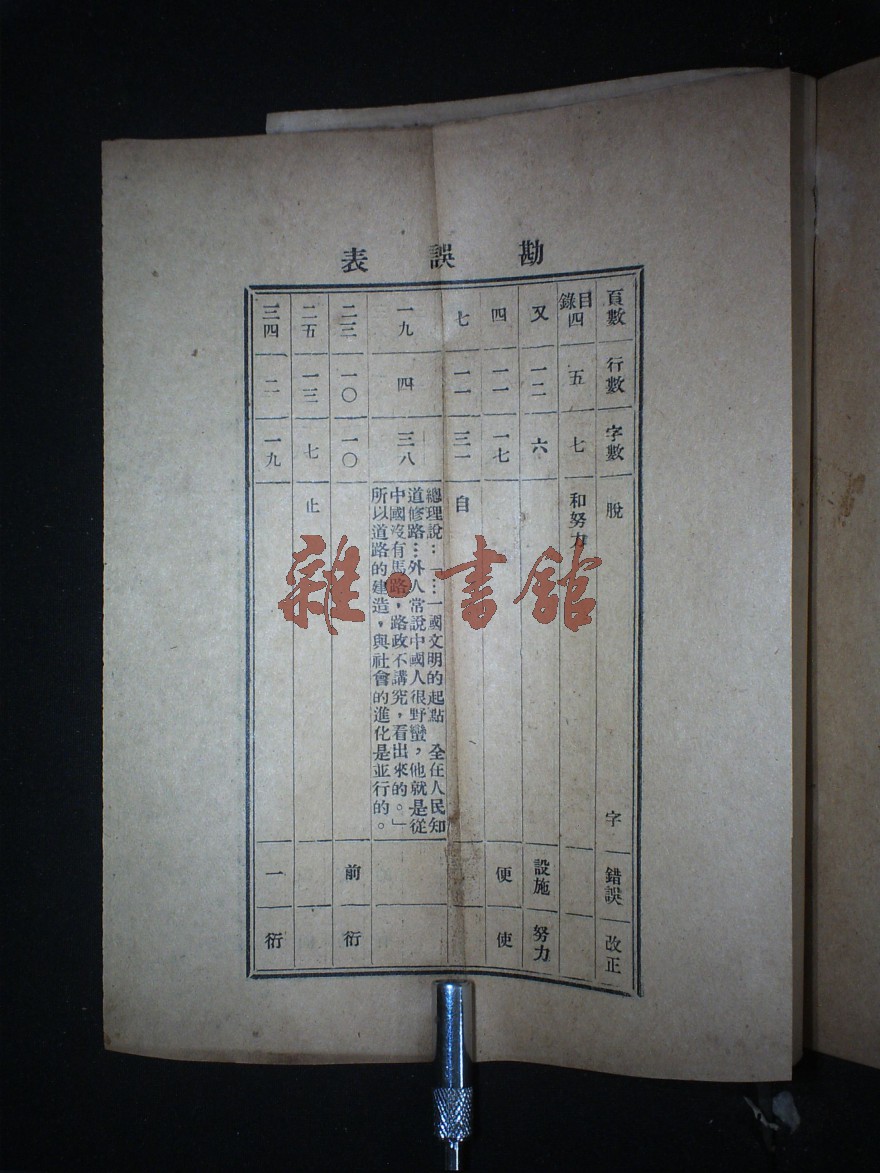 勘誤表
頁數 行數 字數 脫 字 錯誤 改正
目錄四 五 七 和努力
又 一二 六 設施 努力
四 一一 一七 便 使
七 一一 三一 自
一九 四 三八
總理說…「…一國文明的起點 全在人民知
道修路…外人常說中國人很野蠻，他就是從
中國沒有馬路，路政不講究，看出來的。」
所以道路的建造，與社會的進化是並行的。
二三 一〇 一〇 前 衍
二五 一三 七 止
三四 二 一九 一 衍
雜·書館